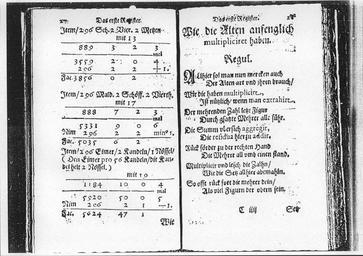 Das erste Register.
Item/296 Sch. 2 Vier. 2 Metzen
mit 13
889 3 2 3
mal
3559 2 0 4
296 2 2
Fac. 3856 0 2
Item/296 Mald. 2 Schöff. 2 Viertl.
mit 17
888 7 2 3
mal
5331 9 0 6
Nim 296 2 2
Fac. 5035 6 2
Item/296 Eimer/2 Kandeln/1 Nössel/
(Den Eimer pro 56 Kandeln/die Kan-
del helt 2 Nössel.)
mit 19
1184 10 0 4
mal
5920 50 0 5
Nim 296 2 1
Fac. 5624 47 1
Wie
Das erste Register.
Wie die Alten anfenglich
multipliciret haben.
Regul.
Allhier sol man nun mercken auch
Der Alten art und ihren brauch/
Wie die haben multipliciret,
Ist nützlich/ wenn man extrahirt.
Der mehrenden Zahl letzte Figur
Durch gantze Mehrte all: führe.
Die Summ versich: aggregir,
Die residua hierzu addir,
Rück förder zu der rechten Hand
Die Mehrer all und einen stand,
Multiplicir und lesch die Zalln/
Wie die Setz allhier abemahln.
So offt rück fort die mehrer dein/
Als viel Figurn der obern sein.
C iiij
Setz